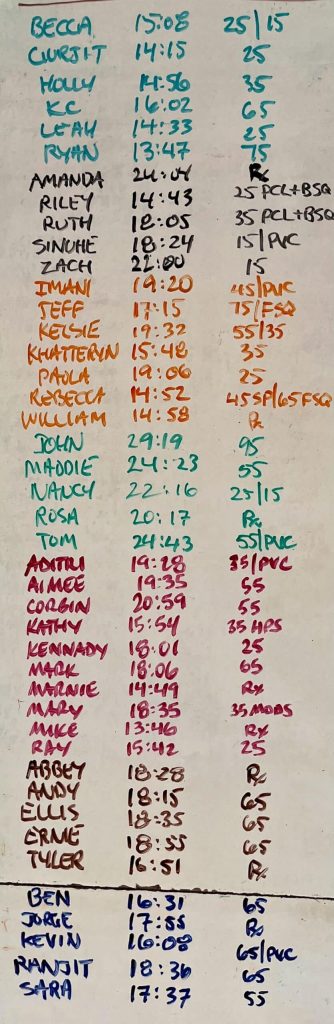 BECCA 15:08 25/15
GURJIT 14:15 25
HOLLY 14:56 35
KC 16:02 65
LEAH 14:33 25
RYAN 13:47 75
AMANDA 24:04 Rx
RILEY 14:43 25 PCL+BSQ
RUTH 18:05 35 PCL+BSQ
SINUHE 18:24 15/PVC
ZACH 22:00 15
IMANI 19:20 45/PVC
JEFF 17:15 75/FSQ
KELSIE 19:32 55/35
KHATTERYN 15:48 35
PAOLA 19:06 25
REBECCA 14:52 45SP/65FSQ
WILLIAM 14:58 Rx
JOHN 29:19 95
MADDIE 24:23 55
NANCY 22:16 25/15
ROSA 20:17 Rx
TOM 24:43 55/PVC
ADITRI 19:28 35/PVC
AIMEE 19:35 55
CORBIN 20:59 55
KATHY 15:54 35 HPS
KENNADY 18:01 25
MARK 18:06 65
MARNIE 14:49 Rx
MARY 18:35 35 MODS
MIKE 13:46 Rx
RAY 15:42 25
ABBEY 18:28 Rx
ANDY 18:15 65
ELLIS 18:35 65
ERNIE 18:55 65
TYLER 16:51 Rx
BEN 16:31 65
JORGE 17:55 Rx
KEVIN 16:08 65/PVC
RANJIT 18:36 65
SARA 17:37 55